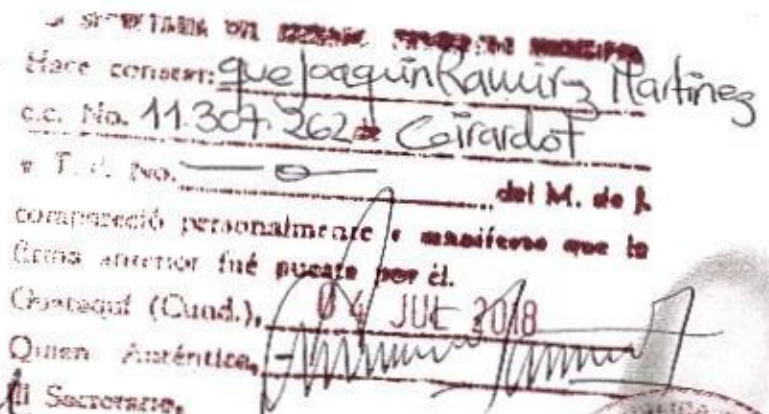 SECRETARIA DEL JUZGADO PROMISCUO MUNICIPAL
Hace constar: que Joaquin Ramirz Martinez
c.c. No. 11.307.262 de Girardot
y T. P. No. —0— del M. de J.
compareció personalmente e manifesto que la
firma anterior fué puesta por él.
Guataquí (Cund.), 04 JUL 2018
Quien Auténtica,
El Secretario,